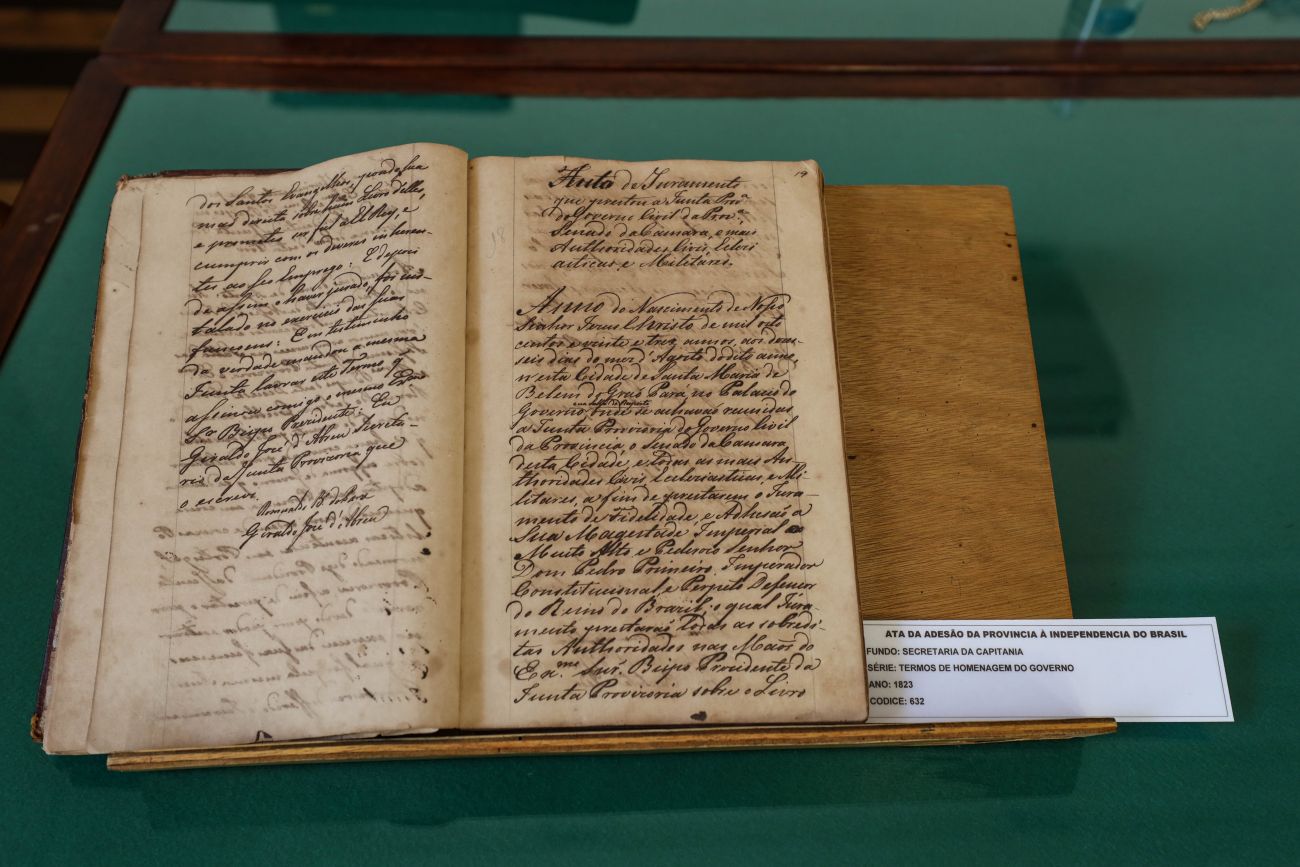 dos Santos Evangelhos, pondo sua
mao direita sobre hum Livro d'elles,
e prometeo ser fiel a El Rey, e
cumprir com os deveres inheren-
tes ao seo Emprego: E depois
de assim o haver jurado, foi ins-
talado no exercicio das suas
funcoens: E em testiminho
da verdade mandou a mesma
Junta lavrar este Termo, q
assinou comigo o mesmo Exmo
Snr Bispo Prezidente: Eu
Giraldo José d'Abreu Secreta-
rio da Junta Provizoria que
o escrevi.
Romualdo B. do Para
Giraldo José d'Abreu
19
Auto de Juramento
que prestou a Junta Prov.ª
do Governo Civil da Prov.ª
Senado da Camara, e mais
Authoridades Civis, Eclesi
asticas, e Militáres.
18
Anno do Nascimento de Nosso
Senhor Jezus Christo de mil oito
centos e vinte e trez annos, aos deses-
seis dias do mez d'Agosto do dito anno,
n'esta Cidade de Santa Maria de
Belem do Grao Pará, no Palacio do
Governo, onde se achavaõ reunidas
a Junta Provizoria do Governo Civil
da Provincia, o Senado da Camara
desta Cidade, e todas as mais Au-
thoridades Civis, Eclesiasticas, e Mi-
litares, a fim de prestarem o Jura-
mento de Fidelidade, e Adhesaõ a
Sua Magestade Imperial o
Muito Alto e Poderozo Senhor
Dom Pedro Primeiro, Imperador
Constitucional, e Perpetuo Defensor
do Reino do Brazil, o qual Jura-
mento prestaraõ todas as sobredi-
tas Authoridades nas Maõs do
Ex.mo Snr. Bispo Prezidente da
Junta Provizoria sobre o Livro
ATA DA ADESÃO DA PROVINCIA À INDEPENDENCIA DO BRASIL
FUNDO: SECRETARIA DA CAPITANIA
SÉRIE: TERMOS DE HOMENAGEM DO GOVERNO
ANO: 1823
CODICE: 632